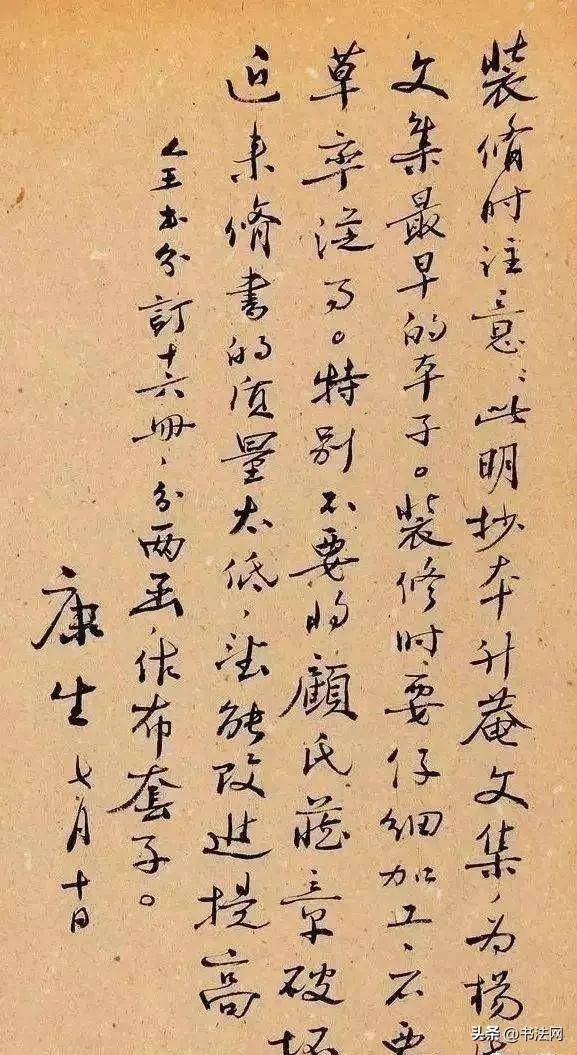 装脩时注意：此明抄本升菴文集，为杨
文集最早的本子。装修时要仔细加工、不要
草率从事。特别不要将顾氏藏章破坏
近来脩书的质量太低，望能改进提高
全书分订十六册，分两函，作布套子。
康生 七月十日
头条 @书法网